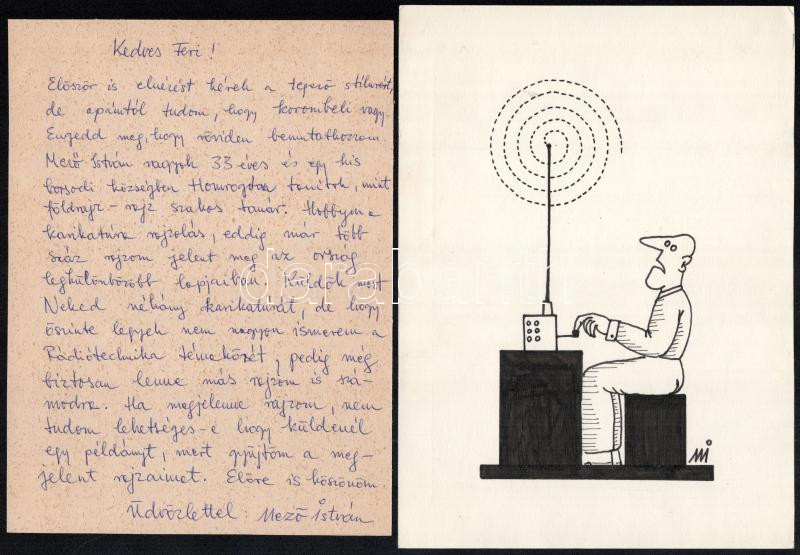 Kedves Feri!
Először is elnézést kérek a tegező stílusért,
de apámtól tudom, hogy korombeli vagy.
Engedd meg, hogy röviden bemutatkozzom.
Mező István vagyok 33 éves és egy kis
borsodi községben Homrogdon tanítok, mint
földrajz-rajz szakos tanár. Hobbym a
karikatúra rajzolás, eddig már több
száz rajzom jelent meg az ország
legkülönbözőbb lapjaiban. Küldök most
Neked néhány karikatúrát, de hogy
őszinte legyek nem nagyon ismerem a
Rádiótechnika témakörét, pedig még
biztosan lenne más rajzom is szá-
modra. Ha megjelenne rajzom, nem
tudom lehetséges-e hogy küldenél
egy példányt, mert gyűjtöm a meg-
jelent rajzaimat. Előre is köszönöm.
Üdvözlettel: Mező István
darabanth